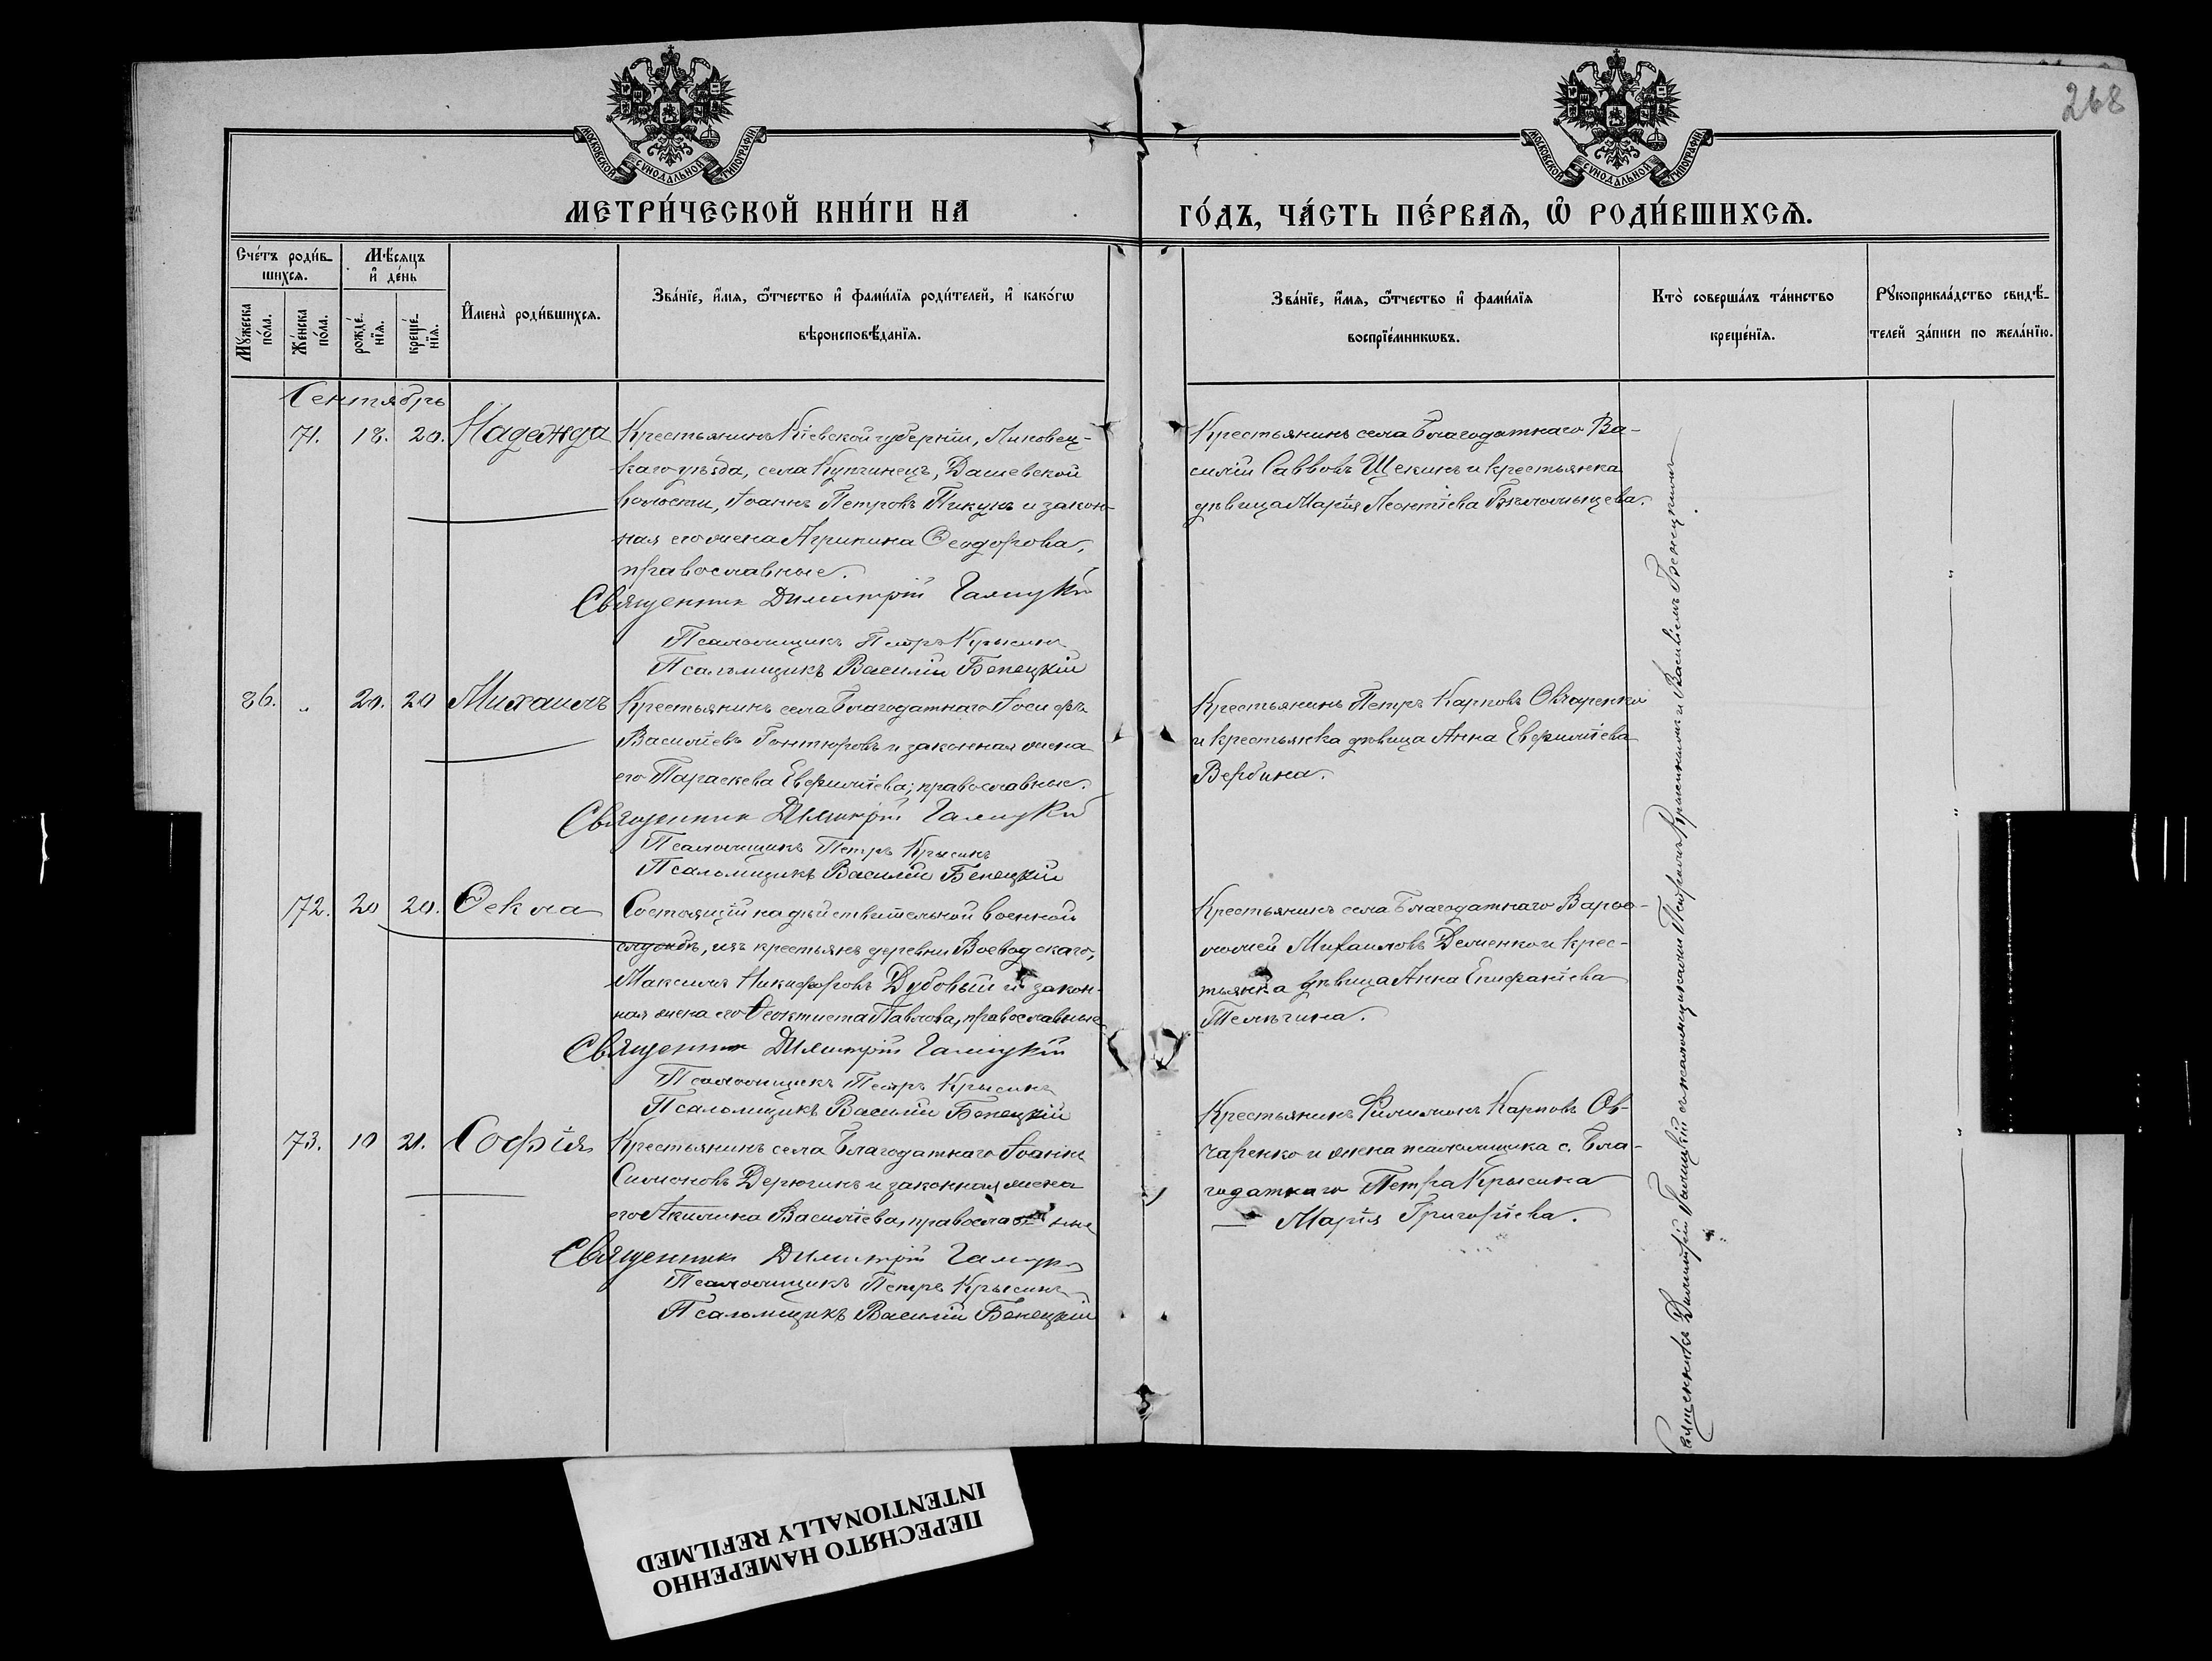 268
МОСКОВСКОЙ СУНОДАЛЬНОЙ ТИПОГРАФІИ
МОСКОВСКОЙ СУНОДАЛЬНОЙ ТИПОГРАФІИ
МЕТРИ́ЧЕСКОЙ КНИ́ГИ НА
ГО́ДЪ, ЧА́СТЬ ПЕ́РВАѦ, Ѡ҆ РОДИ́ВШИХСѦ.
Сче́тъ роди́в-
шихсѧ.
Мѣ́сяцъ
и҆ де́нь
Мꙋ́жеска
по́ла.
Же́нска
по́ла.
рожде́-
нїѧ.
креще́-
нїѧ.
И҆мена̀ роди́вшихсѧ.
Зва́нїе, и҆́мѧ, ѻ҆́тчество и҆ фами́лїѧ роди́телей, и҆ како́гѡ
вѣроисповѣ́данїѧ.
Зва́нїе, и҆́мѧ, ѻ҆́тчество и҆ фами́лїѧ
воспрїе́мникѡвъ.
Кто̀ соверша́лъ та́инство
креще́нїѧ.
Рꙋкоприкла́дство свидѣ́-
телей за́писи по жела́нїю.
Сентябрь
71. 18. 20. Надежда
Крестьянинъ Кіевской губерніи, Липовец-
каго уѣзда, села Купчинецъ, Дашевской
волости, Іоаннъ Петровъ Пикукъ и закон-
ная его жена Агрипина Ѳеодорова,
православные.
Священникъ Димитрій Галицкій
Псаломщикъ Петръ Крысинъ
Псаломщикъ Василій Бенецкій
Крестьянинъ села Благодатнаго Ва-
силій Саввовъ Щекинъ и крестьянка
дѣвица Марія Леонтіева
86. „ 20. 20 Михаилъ
Крестьянинъ села Благодатнаго Іосифъ
Василіевъ Гонтюровъ и законная жена
его Параскева Евфиміева; православные.
Священникъ Димитрій Галицкій
Псаломщикъ Петръ Крысинъ
Псаломщикъ Василій Бенецкій
Крестьянинъ Петръ Карповъ Овчаренко
и крестьянка дѣвица Анна Евфиміева
Вербина.
72. 20 20. Ѳекла
Состоящій на дѣйствительной военной
службѣ, изъ крестьянъ деревни Воеводскаго,
Максимъ Никифоровъ Дубовый и закон-
ная жена его Ѳеоктиста Павлова, православные
Священникъ Димитрій Галицкій
Псаломщикъ Петръ Крысинъ
Псаломщикъ Василій Бенецкій
Крестьянинъ села Благодатнаго Варѳо-
ломей Михаиловъ Деменко и крес-
тьянка дѣвица Анна Епифаніева
Телѣгина.
73. 10 21. Софія
Крестьянинъ села Благодатнаго Іоаннъ
Симоновъ Дерюгинъ и законная жена
его Акилина Василіева, православные
Священникъ Димитрій Галицкій
Псаломщикъ Петръ Крысинъ
Псаломщикъ Василій Бенецкій
Крестьянинъ Филимонъ Карповъ Ов-
чаренко и жена псаломщика с. Бла-
годатнаго Петра Крысина
— Марія Григоріева.
Священникъ Димитрій Галицкій съ псаломщиками Петромъ Крысинымъ и Василіемъ Бенецкимъ
ПЕРЕСНЯТО НАМЕРЕННО
INTENTIONALLY REFILMED